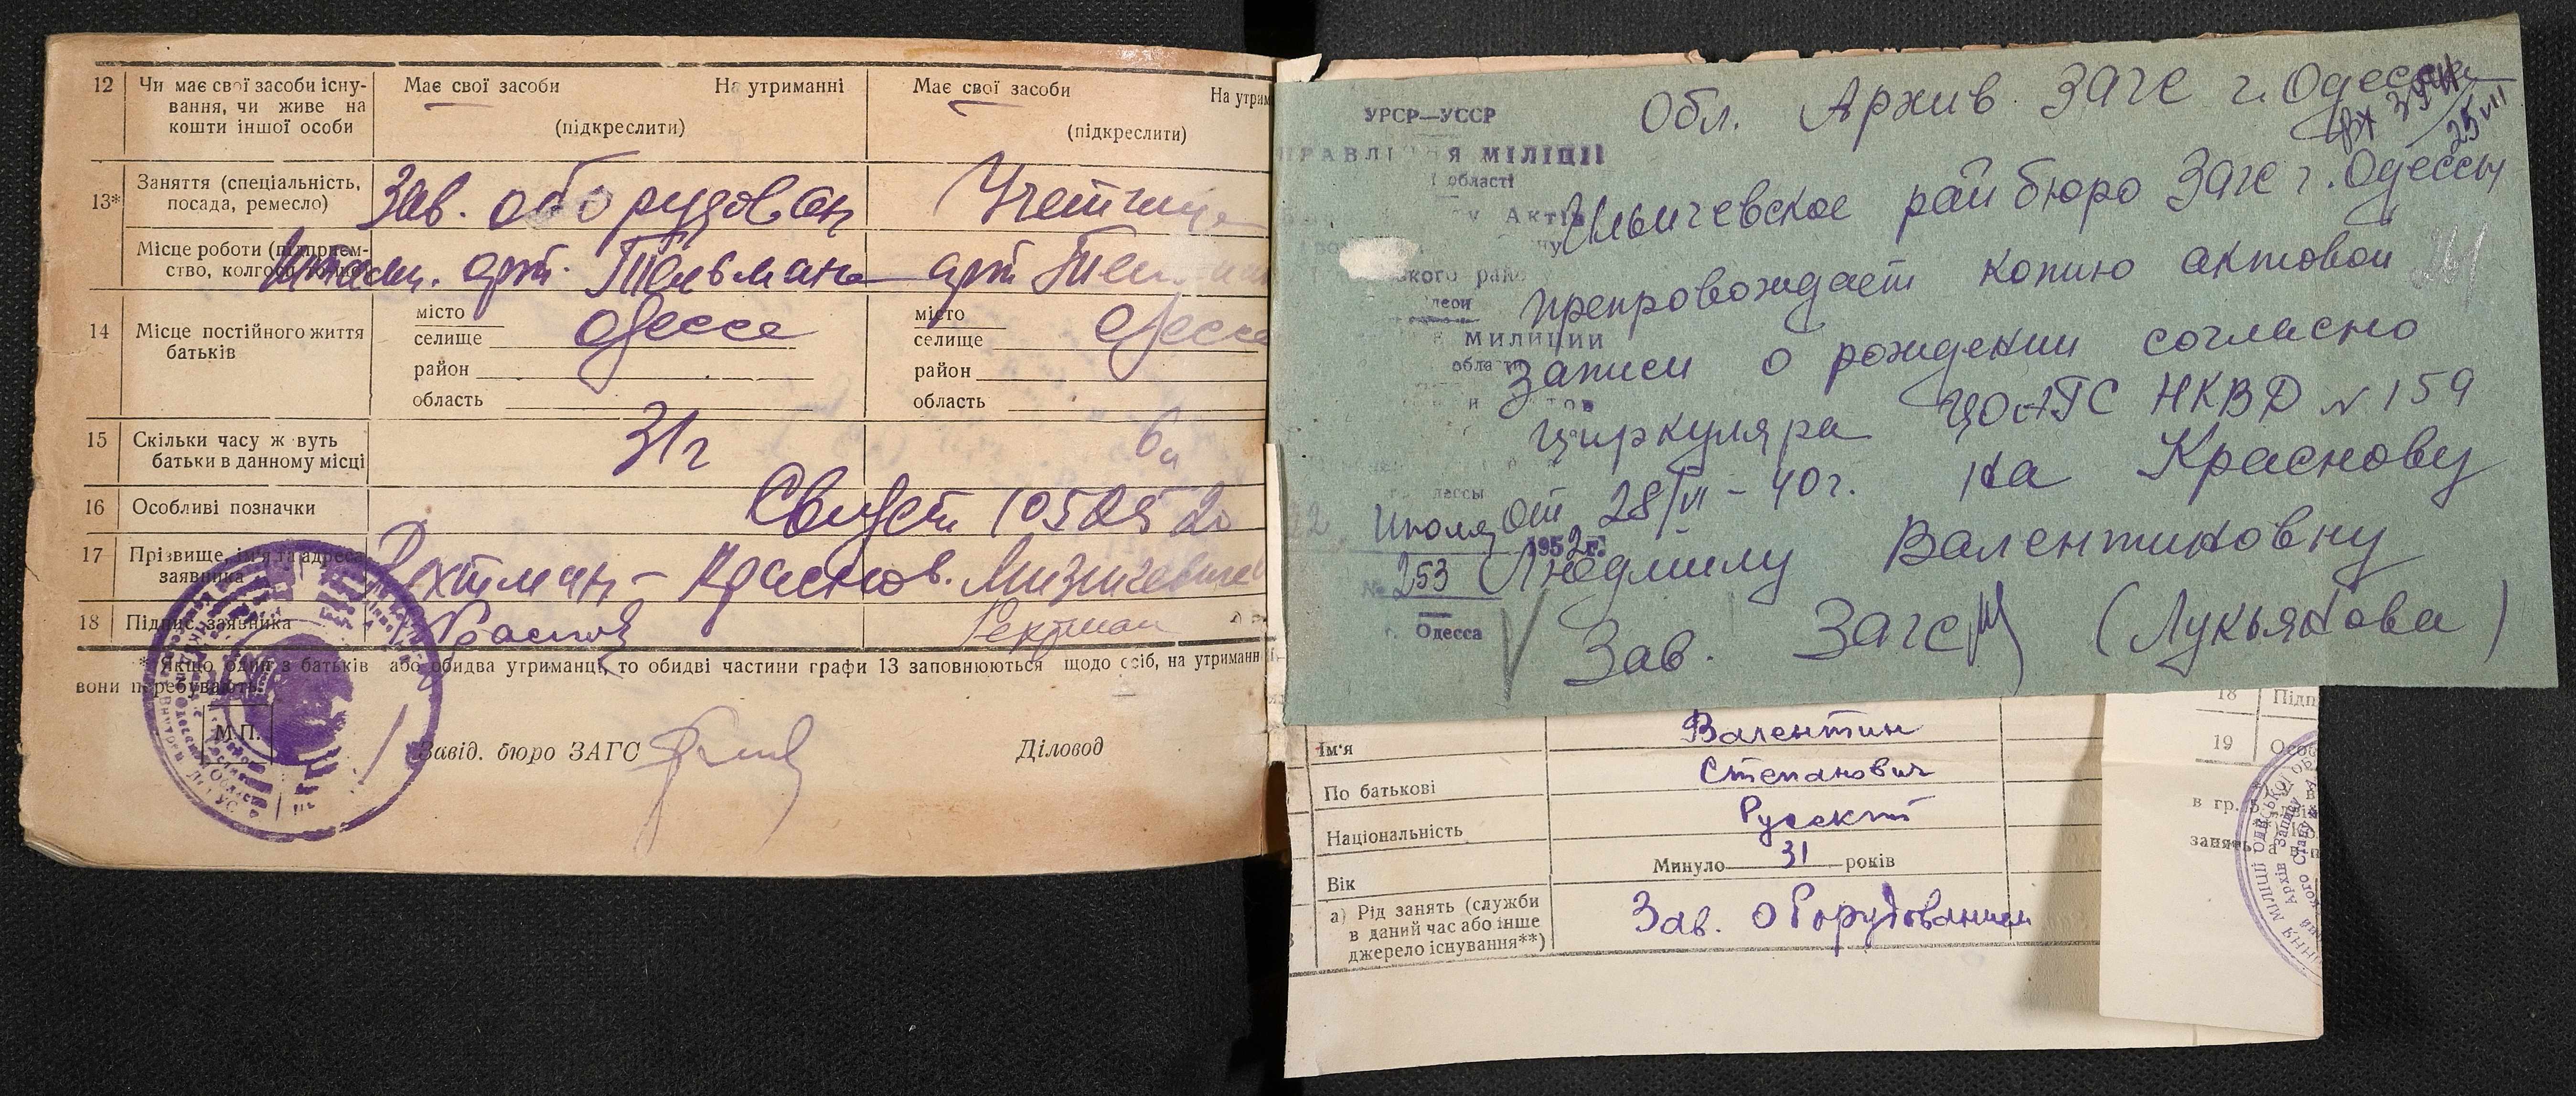 12 Чи має свої засоби існу-
вання, чи живе на
кошти іншої особи
Має свої засоби На утриманні
(підкреслити)
Має свої засоби На утрим
(підкреслити)
13* Заняття (спеціальність,
посада, ремесло)
Зав. оборудован
Учетчица
Місце роботи (підприєм-
ство, колгосп
арт. Тельмана
арт
14 Місце постійного життя
батьків
місто
селище
район
область
Одесса
місто
селище
район
область
Одесса
15 Скільки часу ж вуть
батьки в данному місці
31 г
16 Особливі позначки
17 Прізвище, ім'я та адреса
заявника
Рехтман - Краснов.
18 Підпис заявника
Рехтман
* Якщо один з батьків або обидва утриманці, то обидві частини графи 13 заповнюються щодо осіб, на утриманн
вони перебувають.
М.П.
Завід. бюро ЗАГС
Діловод
УРСР—УССР
МІЛІЦІЇ
області
Актів
МИЛИЦИИ
Обл. Архив ЗАГС г. Одесса
25/VII
Ильичевское райбюро Загс г. Одессы
препровождает копию актовой
записи о рождении согласно
циркуляра ЦОАГС НКВД № 159
от 28/VI - 40 г. на Краснову
Людмилу Валентиновну
Зав. Загс (Лукьянова)
22 Июля 1952 г.
№ 253
г. Одесса
Ім'я Валентин
По батькові Степанович
Національність Русскій
Вік Минуло 31 років
а) Рід занять (служби
в даний час або інше
джерело існування**)
Зав. Оборудованием
18 Підп
19 Особ
в гр. 5
занять